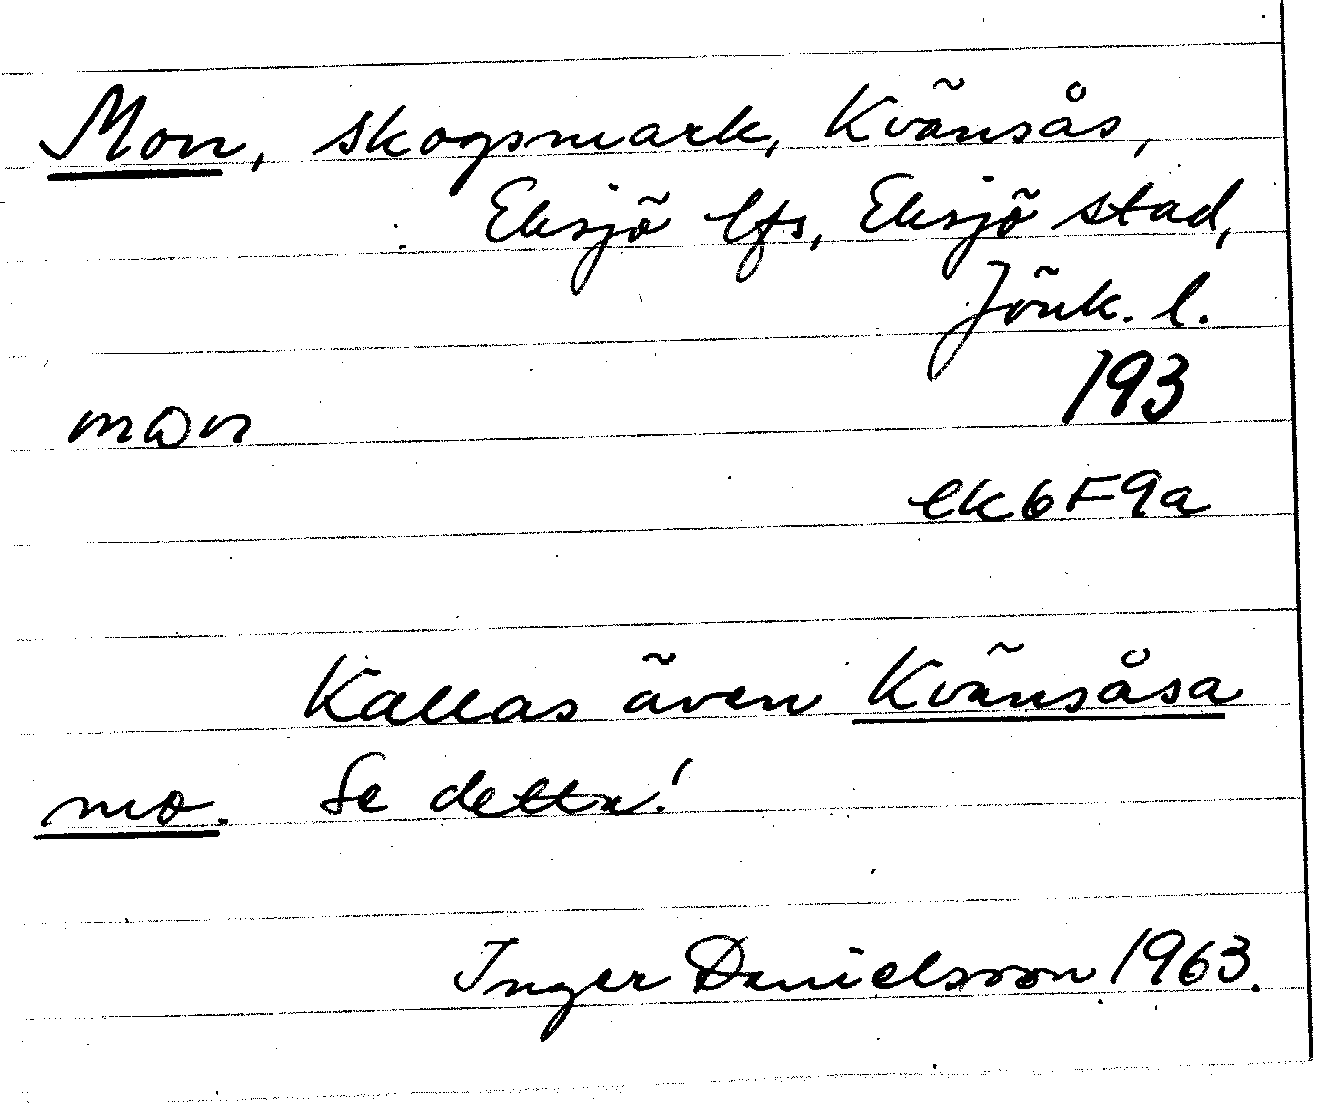 Mon, skogsmark, Kvänsås,
Eksjö lfs, Eksjö stad,
Jönk. l.
193
mɷn
ek6F9a
Kallas även Kvänsåsa
mo. Se detta!
Inger Danielsson 1963.